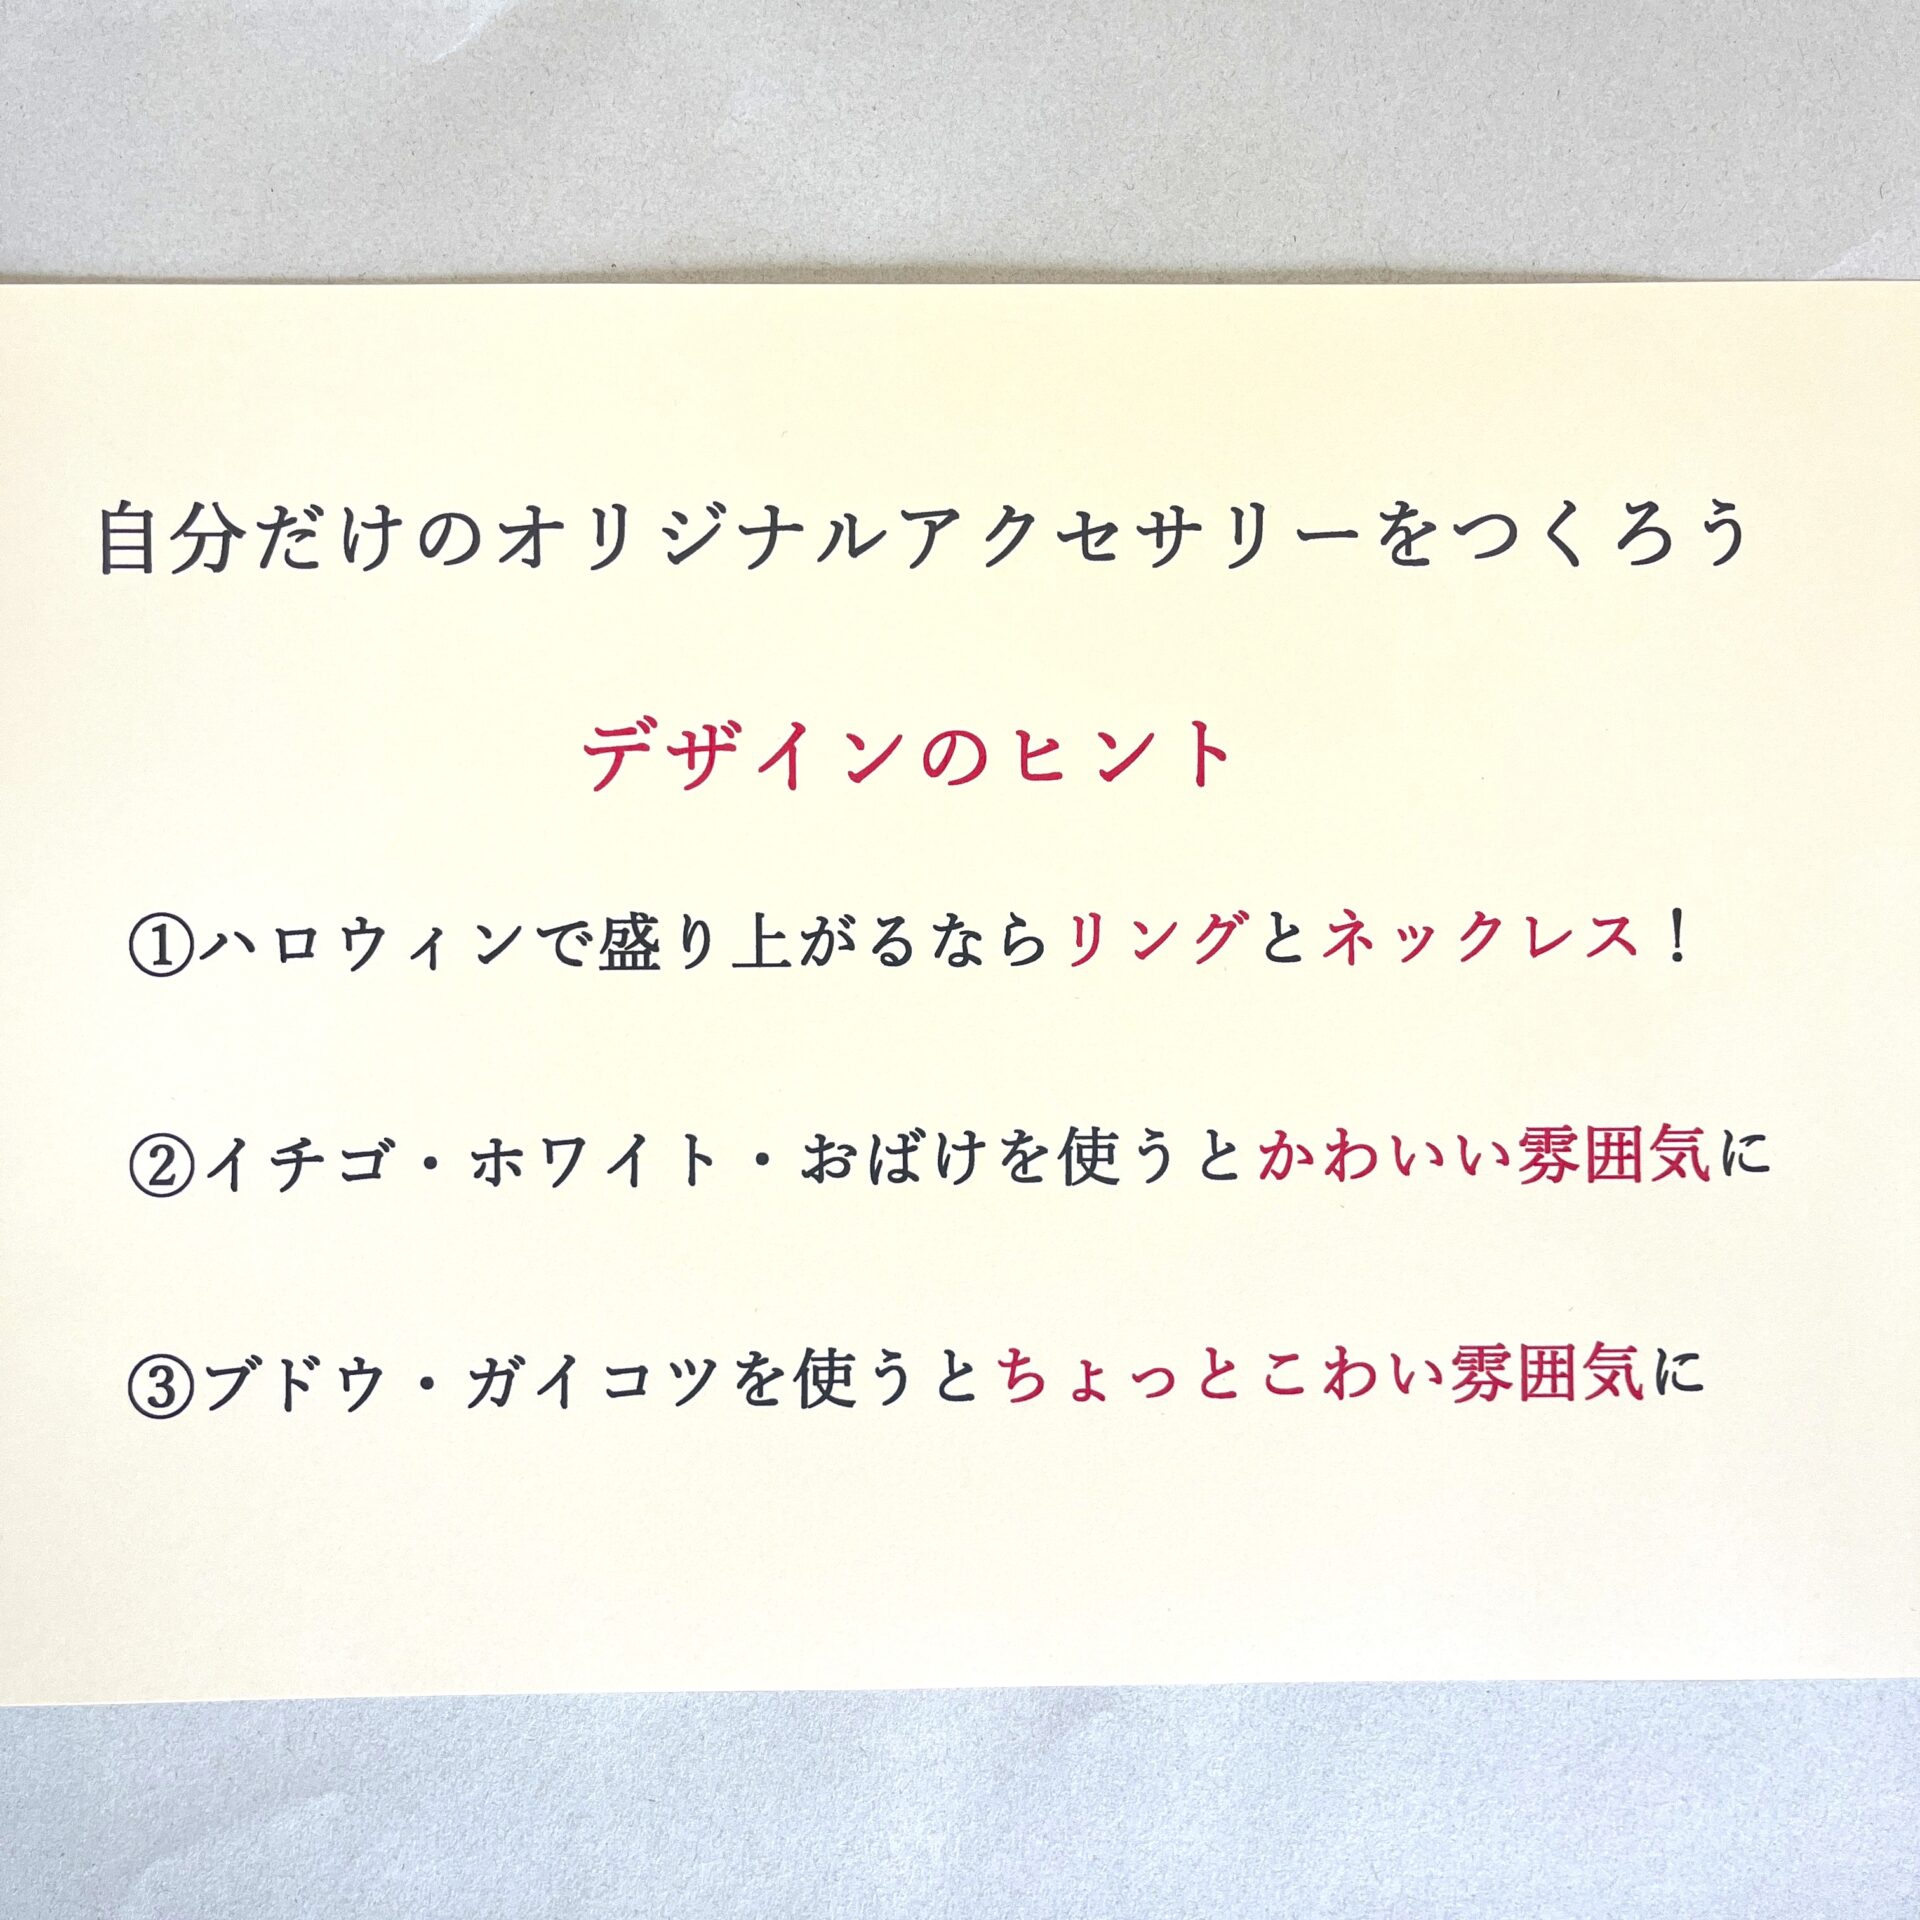 自分だけのオリジナルアクセサリーをつくろう
デザインのヒント
①ハロウィンで盛り上がるならリングとネックレス！
②イチゴ・ホワイト・おばけを使うとかわいい雰囲気に
③ブドウ・ガイコツを使うとちょっとこわい雰囲気に